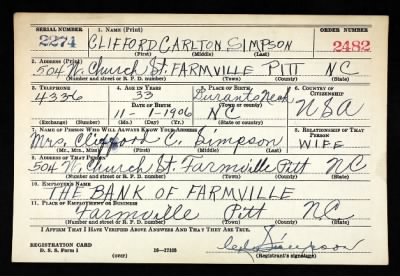 SERIAL NUMBER 1. NAME (Print) ORDER NUMBER
2274 CLIFFORD CARLTON SIMPSON 2482
(First) (Middle) (Last)
2. ADDRESS (Print)
504 W. Church St. FARMVILLE PITT NC
(Number and street or R. F. D. number) (Town) (County) (State)
3. TELEPHONE 4. AGE IN YEARS 5. PLACE OF BIRTH 6. COUNTRY OF CITIZENSHIP
4336 33
DATE OF BIRTH (Town or county)
11-1-1906 NC USA
(Exchange) (Number) (Mo.) (Day) (Yr.) (State or country)
7. NAME OF PERSON WHO WILL ALWAYS KNOW YOUR ADDRESS 8. RELATIONSHIP OF THAT PERSON
Mrs. Clifford C. Simpson WIFE
(Mr., Mrs., Miss) (First) (Middle) (Last)
9. ADDRESS OF THAT PERSON
504 W. Church St. Farmville Pitt NC
(Number and street or R. F. D. number) (Town) (County) (State)
10. EMPLOYER'S NAME
THE BANK OF FARMVILLE
11. PLACE OF EMPLOYMENT OR BUSINESS
Farmville Pitt NC
(Number and street or R. F. D. number) (Town) (County) (State)
I AFFIRM THAT I HAVE VERIFIED ABOVE ANSWERS AND THAT THEY ARE TRUE.
REGISTRATION CARD
D. S. S. Form 1 16—17105 Simpson
(Registrant's signature)